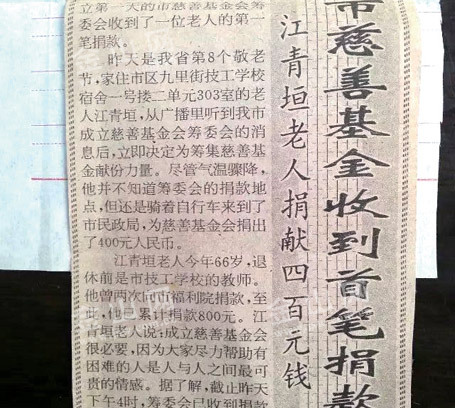 市慈善基金收到首笔捐款
江青垣老人捐献四百元钱
立第一天的市慈善基金会筹
委会收到了一位老人的第一
笔捐款。
昨天是我省第8个敬老
节,家住市区九里街技工学校
宿舍一号搂二单元303室的老
人江青垣,从广播里听到我市
成立慈善基金会筹委会的消
息后,立即决定为筹集慈善基
金献份力量。尽管气温骤降,
他并不知道筹委会的捐款地
点,但还是骑着自行车来到了
市民政局,为慈善基金会捐出
了400元人民币。
江青垣老人今年66岁,退
休前是市技工学校的教师。
他曾两次向市福利院捐款,至
此,他已累计捐款800元。江
青垣老人说:成立慈善基金会
很必要,因为大家尽力帮助有
困难的人是人与人之间最可
贵的情感。据了解,截止昨天
下午4时,筹委会已收到捐款